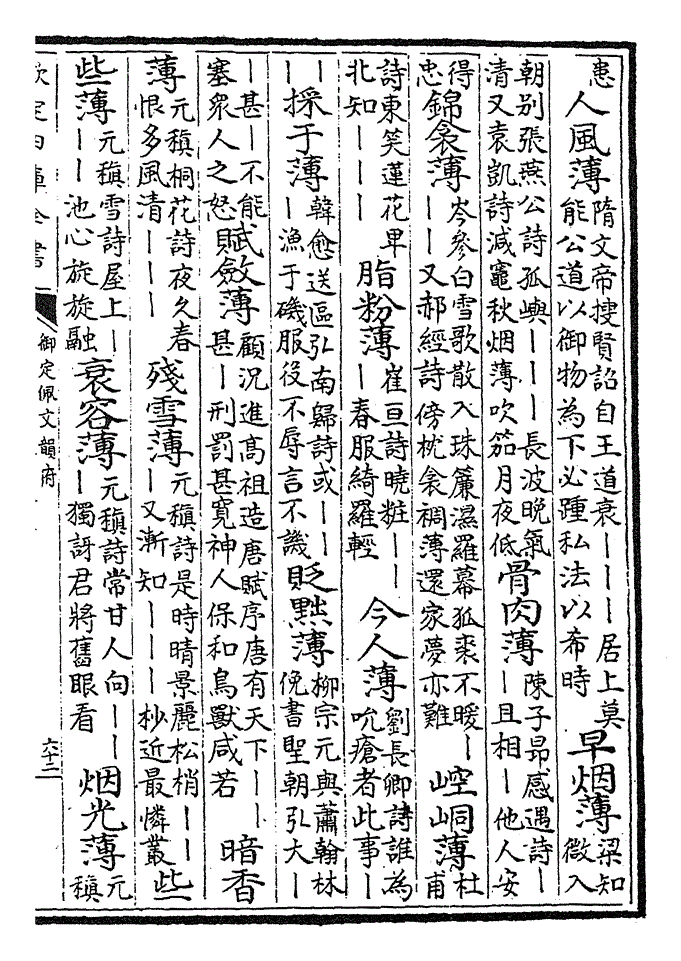 患
人風薄
隋文帝搜賢詔自王道衰｜｜｜居上莫
能公道以御物為下必踵私法以希時
早烟薄
梁知
微入
朝别張燕公詩孤嶼｜｜｜長波晚氣
清又袁凱詩減竈秋烟薄吹笳月夜低
骨肉薄
陳子昂感遇詩｜
｜且相｜他人安
得
忠
錦衾薄
岑參白雪歌散入珠簾濕羅幕狐裘不暖｜
｜｜又郝經詩傍枕衾裯薄還家夢亦難
崆峒薄
杜
甫
詩東笑蓮花卑
北知｜｜｜
脂粉薄
崔亘詩曉粧｜｜
｜春服綺羅輕
今人薄
劉長卿詩誰為
吮瘡者此事｜
｜
｜
採于薄
韓愈送區弘南歸詩或｜｜
｜漁于磯服役不辱言不譏
貶黜薄
柳宗元與蕭翰林
俛書聖朝弘大｜
｜甚｜不能
塞衆人之怒
賦斂薄
顧況進高祖造唐賦序唐有天下｜｜
甚｜刑罰甚寛神人保和鳥獸咸若
暗香
薄
元稹桐花詩夜久春
恨多風清｜｜｜
殘雪薄
元稹詩是時晴景麗松梢｜｜
｜又漸知｜｜｜杪近最憐叢
些
些薄
元稹雪詩屋上｜
｜｜池心旋旋融
衰容薄
元稹詩常甘人向｜｜
｜獨訝君將舊眼看
烟光薄
元
稹
欽定四庫全書
御定佩文韻府
六十二